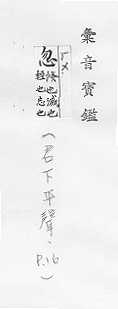 彙音寶鑑
忽
倏也滅也
輕也忘也
(君下平聲, P.16)